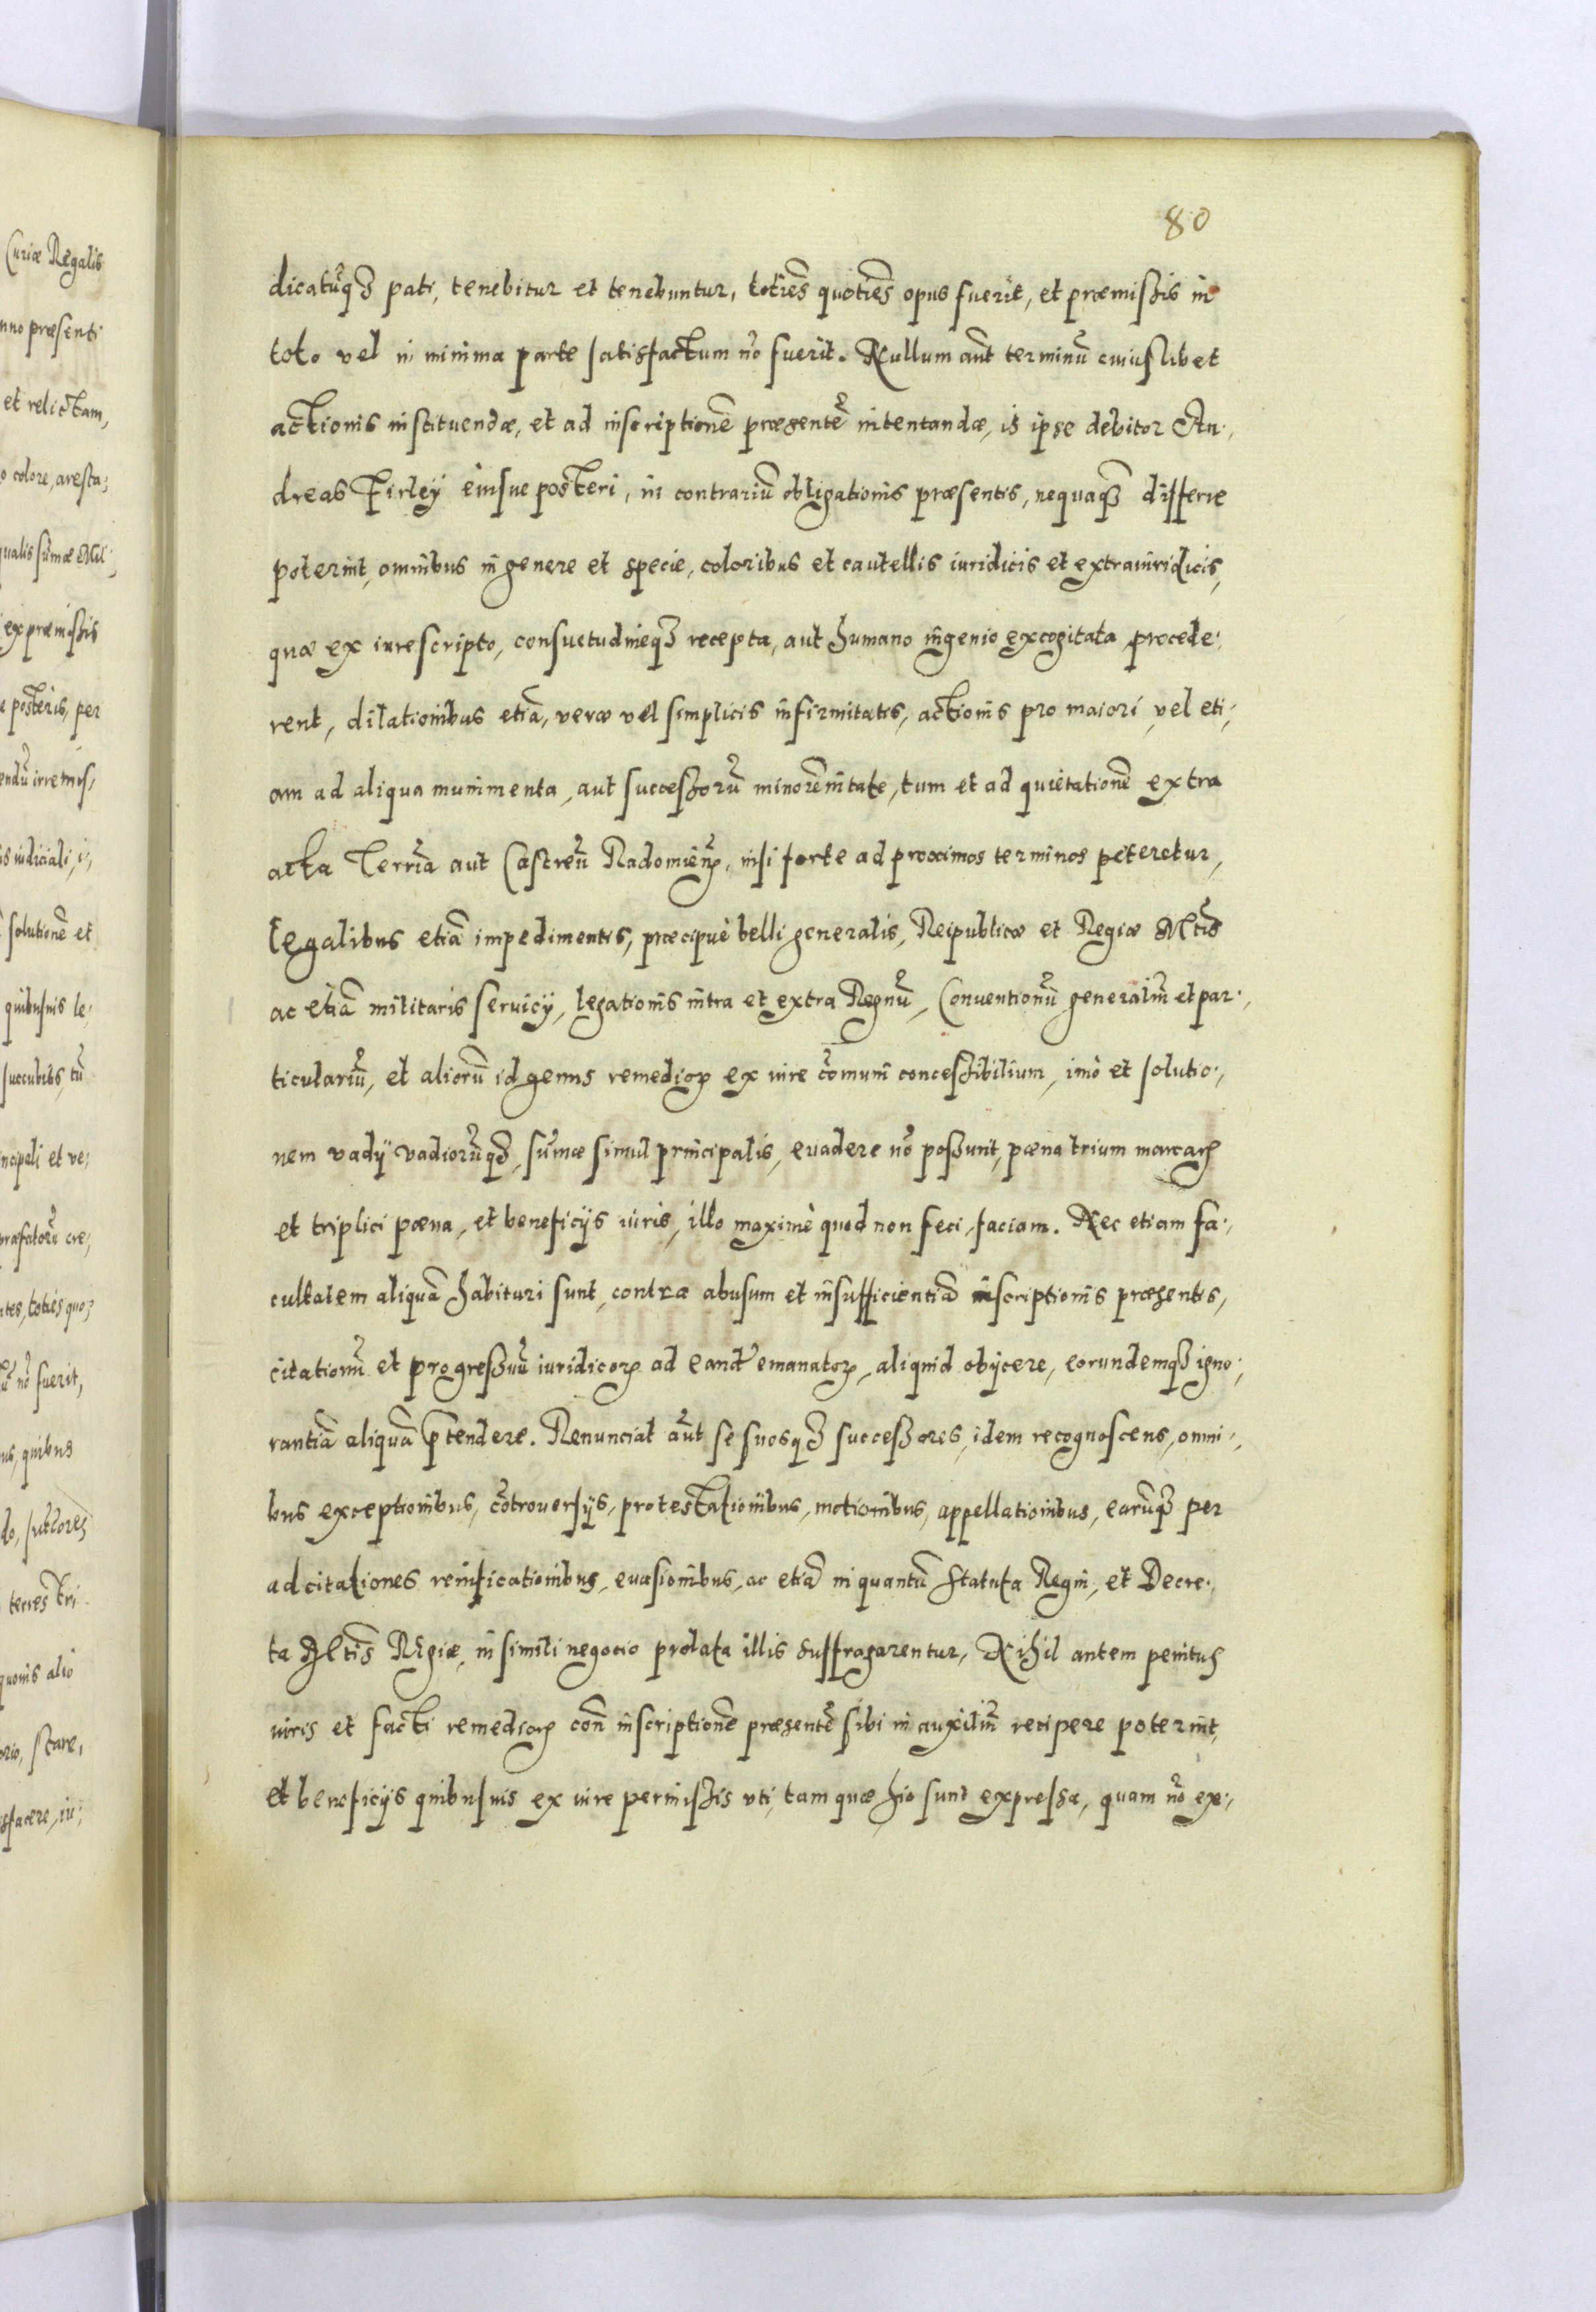 80
dicatūq₃ pati, tenebitur et tenebuntur, totiēs quotiēs opus fuerit, et præmissis in
toto vel in minima parte satisfactum nō fuerit. Nullum aūt terminū cuiuslibet
actionis instituendæ, et ad inscriptionē præsentē intentandæ, is ipse debitor An:
dreas Firleÿ eiusue posteri, in contrariū obligationis præsentis, nequaq₃ differre
poterint, omnibus in genere et specie, coloribus et cautellis iuridicis et extraiuridicis,
quæ ex iurescripto, consuetudineq₃ recepta, aut humano ingenio excogitata procede:
rent, dilationibus etiā, veræ vel simplicis infirmitatis, actionis pro maiori, vel eti:
am ad aliqua munimenta, aut successorū minorēnitate, tum et ad quietationē extra
acta Terrīa aut Castrēn Radomieñ, nisi forte ad proximos terminos peteretur,
legalibus etiā impedimentis, præcipuè belli generalis, Reipublicæ et Regiæ Mtis
ac etiā militaris seruicij, legationis intra et extra Regnū, Conventionū generaliūm et par:
ticulariū, et aliorū id genus remediorꝝ ex iure cōmuni concessibilium, imò et solutio:
nem vadÿ vadiorūq₃, sūmæ simul principalis, euadere nō possunt, pæna trium marcarꝝ
et triplici pæna, et beneficijs iuris, illo maximè quod non feci, faciam. Nec etiam fa:
cultatem aliquā habituri sunt, contra abusum et insufficientiā inscriptionis præsentis,
citationū et progressuū iuridicorꝝ ad eand' emanatorꝝ, aliquid obijcere, eorundemq₃ igno:
rantiā aliquā p̄tendere. Renunciat aūt se suosq₃ successores, idem recognoscens, omni:
bus exceptionibus, cōtrouersijs, protestationibus, motionibus, appellationibus, earūq₃ per
adcitationes reinficationibus, euasionibus, ac etiā in quantū statuta Regni, et Decre:
ta Mtis Regiæ, in simili negocio prolata illis suffragarentur, Nihil autem penitus
iuris et facti remediorꝝ coñ inscriptionē præsentē sibi in auxiliū recipere poterint,
et beneficijs quibusuis ex iure permissis vti, tam quæ hic sunt expressa, quam nō ex: